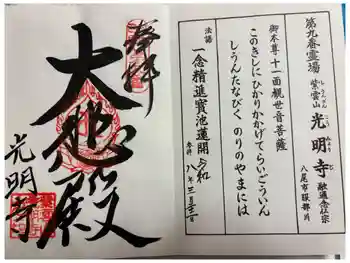 第九番霊場
紫雲山 光明寺 融通念仏宗
しうんざん こうみょうじ
八尾市服部川
御本尊十一面観世音菩薩
このきしにひかりかかげてらいごういん
しうんたなびくのりのやまには
法語
一念精進寶池蓮開
令和 八年 三月
奉拝
大悲殿
光明寺